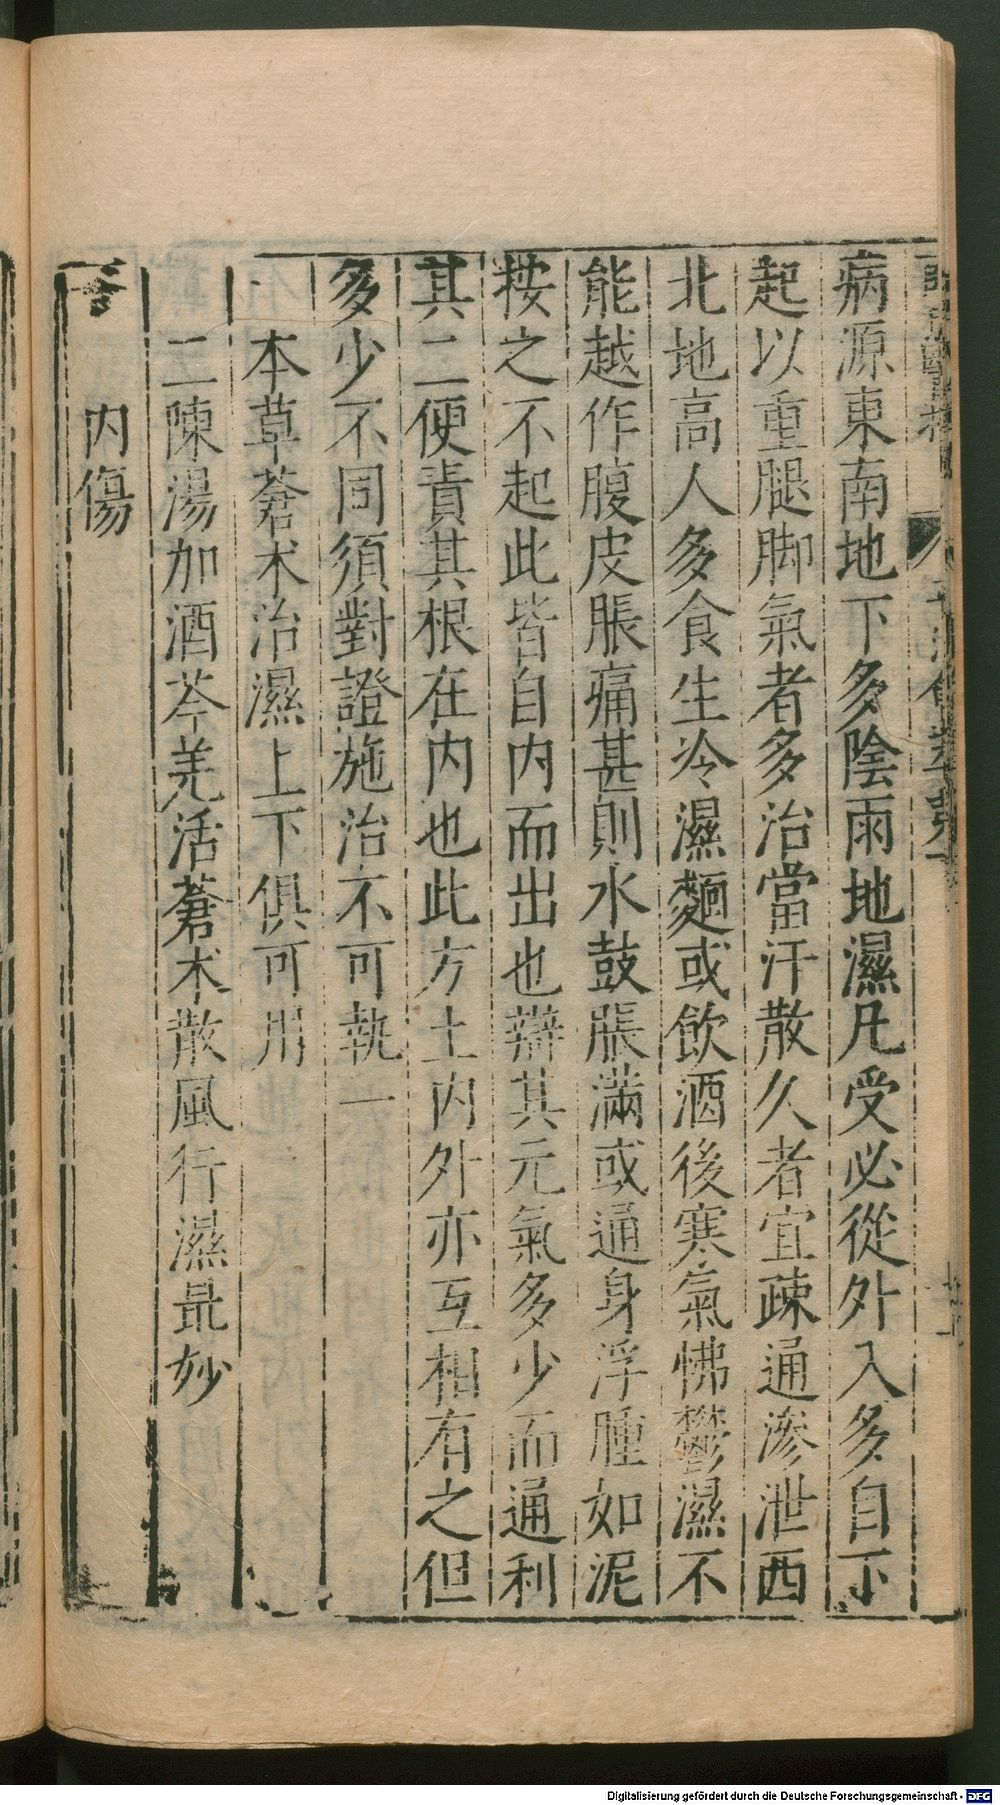 病源東南地下多陰雨地濕凡受必從外入多自下
起以重腿脚氣者多治當汗散久者宜疎通滲泄西
北地高人多食生冷濕麵或飲酒後寒氣怫鬱濕不
能越作腹皮脹痛甚則水鼓脹滿或通身浮腫如泥
按之不起此皆自内而出也辯其元氣多少而通利
其二便責其根在内也此方土内外亦互相有之但
多少不同須對證施治不可執一
本草蒼朮治濕上下俱可用
二陳湯加酒芩羌活蒼朮散風行濕最妙
内傷
Digitalisierung gefördert durch die Deutsche Forschungsgemeinschaft - DFG